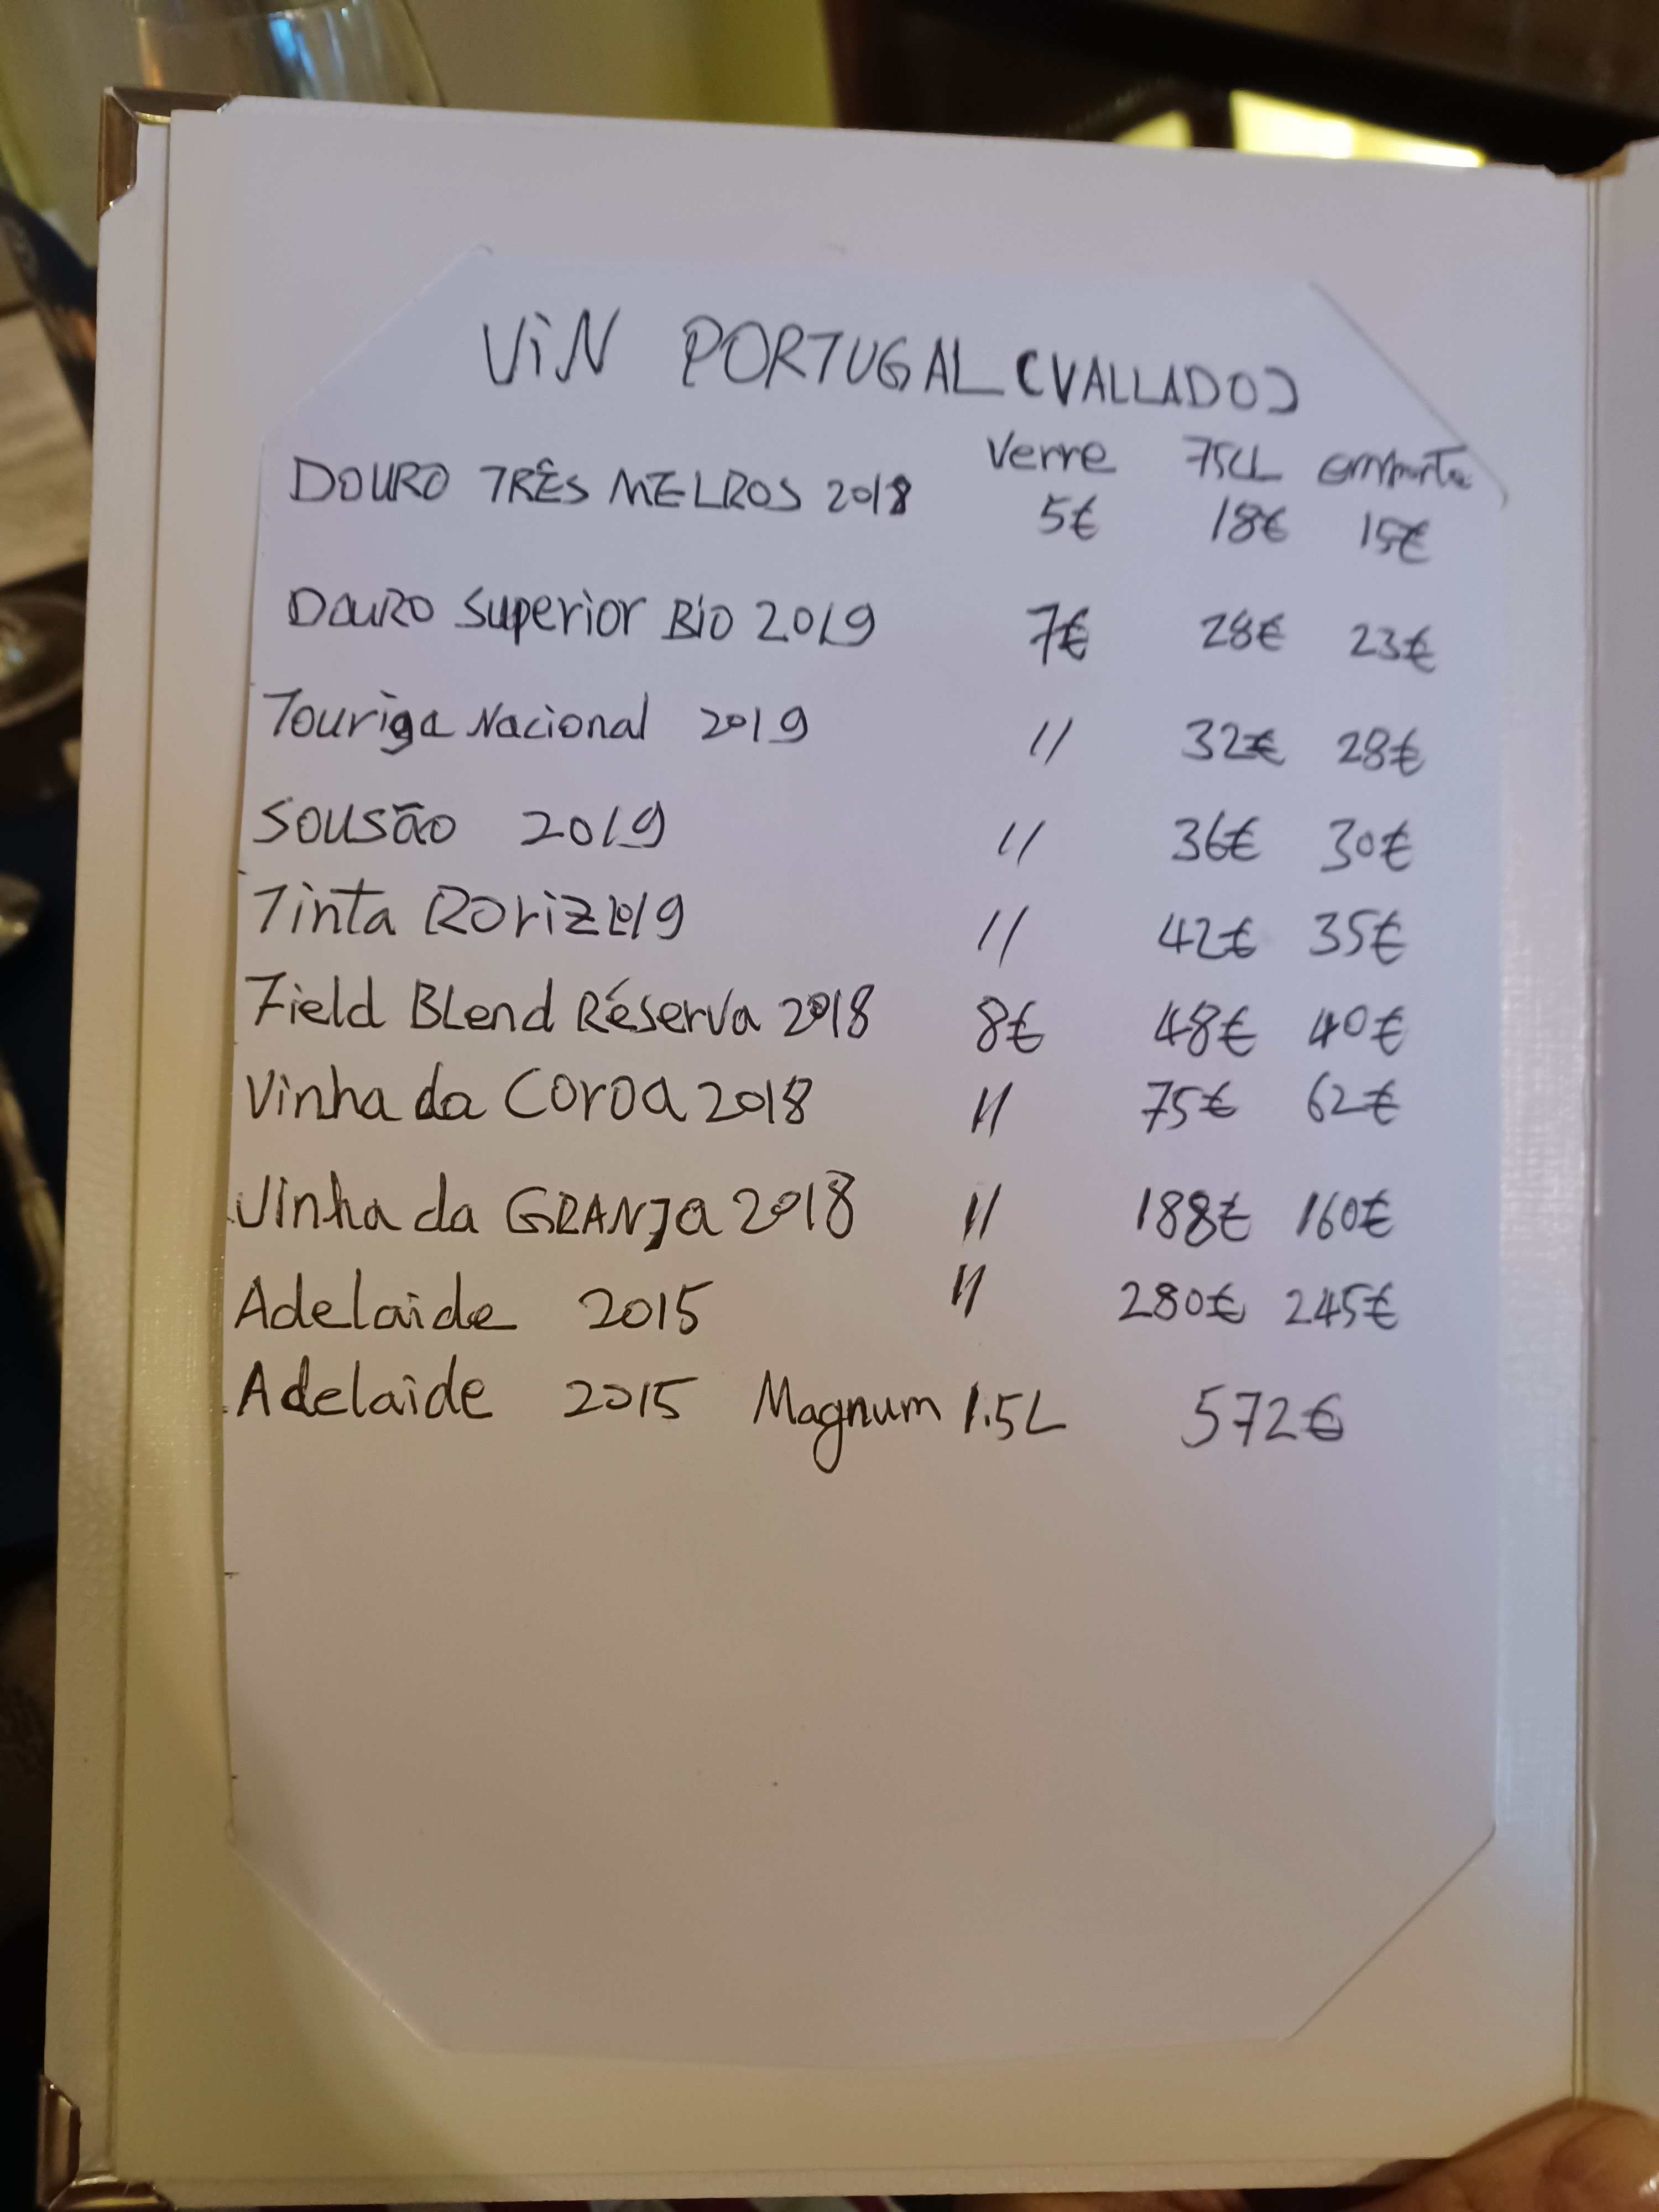 ViN PORTUGAL (VALLADO)
Verre 75CL emporte
DOURO TRÊS MELROS 2018 5€ 18€ 15€
DOURO Superior Bio 2019 7€ 28€ 23€
Touriga Nacional 2019 // 32€ 28€
Sousão 2019 // 36€ 30€
Tinta Roriz 2019 // 42€ 35€
Field Blend Réserva 2018 8€ 48€ 40€
Vinha da Coroa 2018 // 75€ 62€
Vinha da GRANJa 2018 // 188€ 160€
Adelaide 2015 // 280€ 245€
Adelaide 2015 Magnum 1.5L 572€